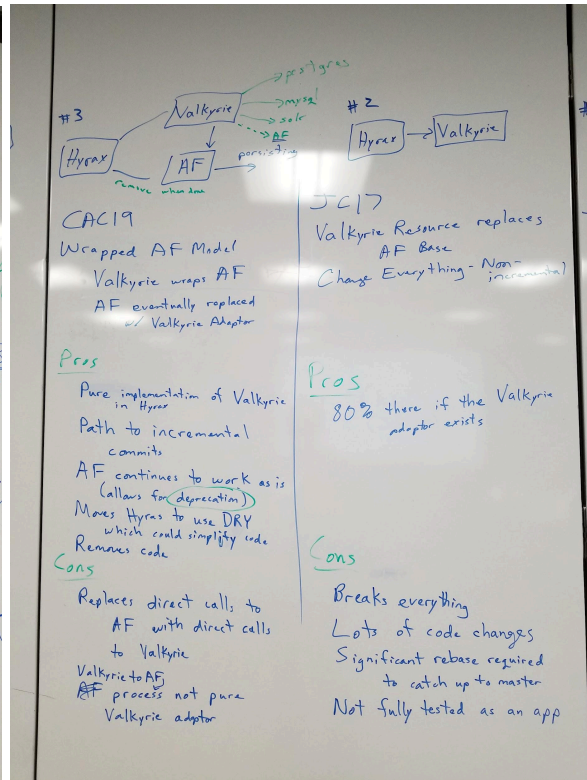 #3
Valkyrie
postgres
mysql
solr
AF
Hyrax
AF
persisting
remove when done
CAC19
Wrapped AF Model
Valkyrie wraps AF
AF eventually replaced
w/ Valkyrie Adaptor
Pros
Pure implementation of Valkyrie
in Hyrax
Path to incremental
commits
AF continues to work as is
(allows for deprecation)
Moves Hyrax to use DRY
which could simplify code
Removes code
Cons
Replaces direct calls to
AF with direct calls
to Valkyrie
Valkyrie to AF
process not pure
Valkyrie adaptor
#2
Hyrax
Valkyrie
JC17
Valkyrie Resource replaces
AF Base
Change Everything - Non-
incremental
Pros
80% there if the Valkyrie
adaptor exists
Cons
Breaks everything
Lots of code changes
Significant rebase required
to catch up to master
Not fully tested as an app